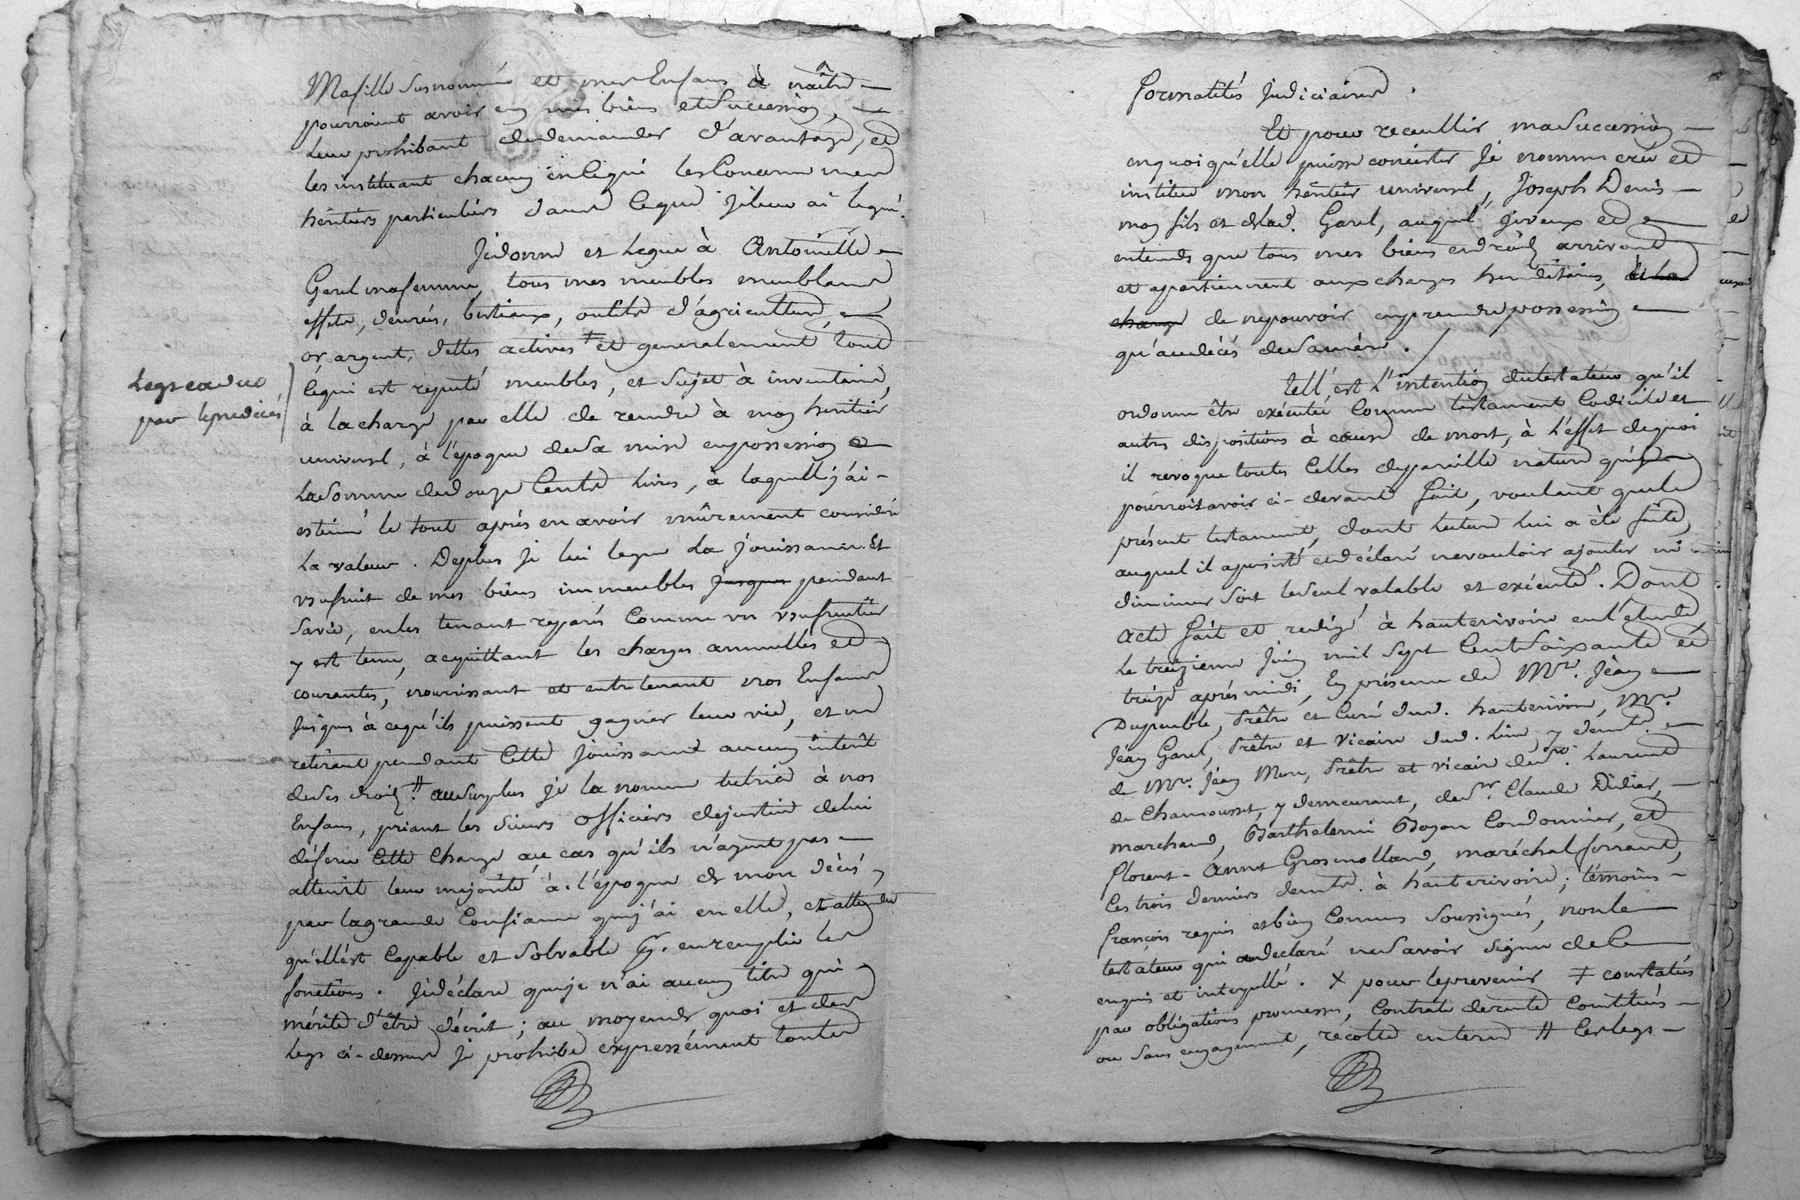 Mafille susnommée et mes Enfans à naître
pourraient avoir en mes biens et Succession,
leur prohibant dedemander d'avantage, et
les instituant chacun en legué les concernant mes
héritiers particuliers dans leque jeleur ai legué.
Jedonne et Legue à Antoinette
Garel mafemme, tous mes meubles meublans
effets, denrées, bestiaux, outils d'agriculture,
or, argent, dettes actives ≠ et generalement tout
cequi est reputé meubles, et sujet à inventaire,
Legs caduc
par leprédécés
à lacharge par elle de rendre à mon heritier
universel, à l'époque desa mise enpossession
Lasomme dedouze Cents Livres, à laquelle j'ai
estimé le tout après en avoir mûrement considéré
La valeur. Deplus je lui legue La jouissance Et
usufruit de mes biens immeubles jusques pendant
savie, enles tenant reparés Comme un usufruitier
y est tenu, acquittant les charges annuelles et
courantes, nourrissant et entretenant nos Enfans
Jusques à cequ'ils puissent gagner leur vie, et ne
retirant pendant Cette Jouissance aucun intérêt
deses droits. # ausurplus je la nomme tutrice à nos
Enfans, priant les sieurs officiers dejustice delui
déferer Cette Charge au cas qu'ils n'ayent pas
atteint leur majorité à l'époque de mon décés,
par lagrande Confiance quej'ai en elle, et attendu
qu'elle est Capable et Solvable p.r en remplir les
fonctions. Jedéclare queje n'ai aucun titre qui
mérite d'être décrit; au moyende quoi et des
legs ci-dessus Je prohibe expressément toutes
formalités Judiciaires.
Et pour recueillir masuccession
enquoi qu'elle puisse consister Je nomme crée et
institue mon héritier universel, Joseph Denis
mon fils et delad. Garel, auquel je veux et
entends que tous mes biens et droits arrivent
et apartiennent aux charges hereditaires, et la
charge de nepouvoir enprendre possession
qu'audécés desamère.
Tell'est l'intention dutestateur qu'il
ordonne être exécutée Comme testament Codicile et
autres dispositions à cause de mort, à l'effet dequoi
il revoque toutes Celles depareille nature qu'il
pourroit avoir ci-devant fait, voulant quele
présent testament, dont lecture lui a été faite,
auquel il apersisté et déclaré nevouloir ajouter ni
diminuer soit leseul valable et exécuté. Dont
acte fait et redigé à hauterivoire en l'étude
Le treizieme Juin mil sept Cent soixante et
treize après midi, En présence de M.re Jean
Dupeuble, Prêtre et Curé dud. hauterivoire, M.re
Jean Garel, Prêtre et Vicaire dud. Lieu y demt.
de M.re Jean More, Prêtre et vicaire de S.t Laurent
de Chamousset, y demeurant, de S.r Claude Didier,
marchand, Barthelemi Boyou Cordonnier, et
florent-Anne Grosmollard, maréchal ferrant,
Ces trois derniers demts. à hauterivoire; témoins
françois requis et bien Connus Soussignés, nonle
testateur qui a déclaré nesavoir signer dece
enquis et interpellé. X pour leprevenir ≠ constatées
par obligations promesses, Contrats derente Constitués
ou sans engagement, récolte enterre # Ces legs